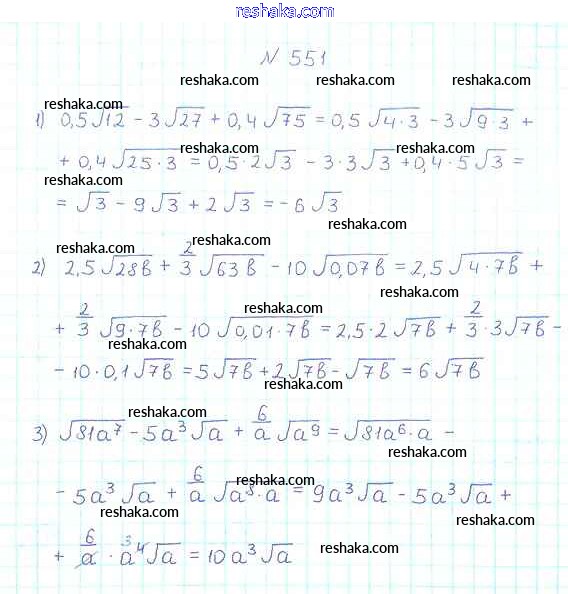 reshaka.com
N 551
reshaka.com reshaka.com reshaka.com
reshaka.com
1) 0,5√12 - 3√27 + 0,4√75 = 0,5√4·3 - 3√9·3 +
reshaka.com reshaka.com
+ 0,4√25·3 = 0,5·2√3 - 3·3√3 + 0,4·5√3 =
reshaka.com
= √3 - 9√3 + 2√3 = -6√3
reshaka.com
reshaka.com reshaka.com
2) 2,5√28b + 2/3√63b - 10√0,07b = 2,5√4·7b +
reshaka.com
+ 2/3√9·7b - 10√0,01·7b = 2,5·2√7b + 2/3·3√7b -
reshaka.com reshaka.com
- 10·0,1√7b = 5√7b + 2√7b - √7b = 6√7b
reshaka.com
reshaka.com
3) √81a⁷ - 5a³√a + 6/a√a⁹ = √81a⁶·a -
reshaka.com
reshaka.com
- 5a³√a + 6/a√a⁸·a = 9a³√a - 5a³√a +
reshaka.com
+ 6/a·a³⁴√a = 10a³√a
reshaka.com
reshaka.com